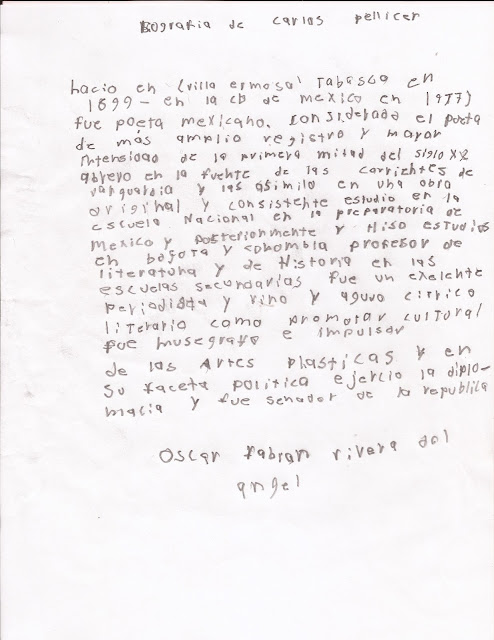 Biografia de carlos pellicer
nacio en (villa ermosa) Tabasco en
1899 - en la cd de mexico en 1977)
fue poeta mexicano. considerado el poeta
de más amplio registro y mayor
intensidad de la primera mitad del siglo XX
abrevo en la fuente de las corrientes de
vanguardia y las asimilo en una obra
original y consistente estudio en la
escuela Nacional en la preparatoria de
mexico y posteriormente y Hiso estudios
en bogota y colombia profesor de
literatura y de Historia en las
escuelas secundarias fue un exelente
periodista y vino y agudo critico
literario como promotor cultural
fue musegrafo e impulsor
de las Artes plasticas y en
su faceta politica ejercio la diplo-
macia y fue senador de la republica
Oscar fabian rivera del
angel